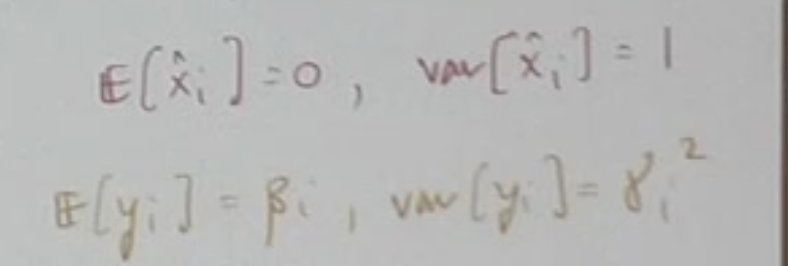 𝔼[x̂ᵢ] = 0, var[x̂ᵢ] = 1
𝔼[yᵢ] = βᵢ, var[yᵢ] = γᵢ²